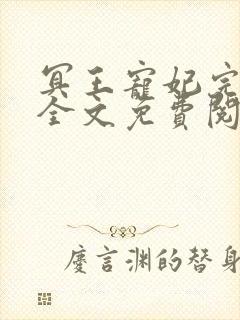 冥王寵妃完
全文免費閱
慶言淵的替身